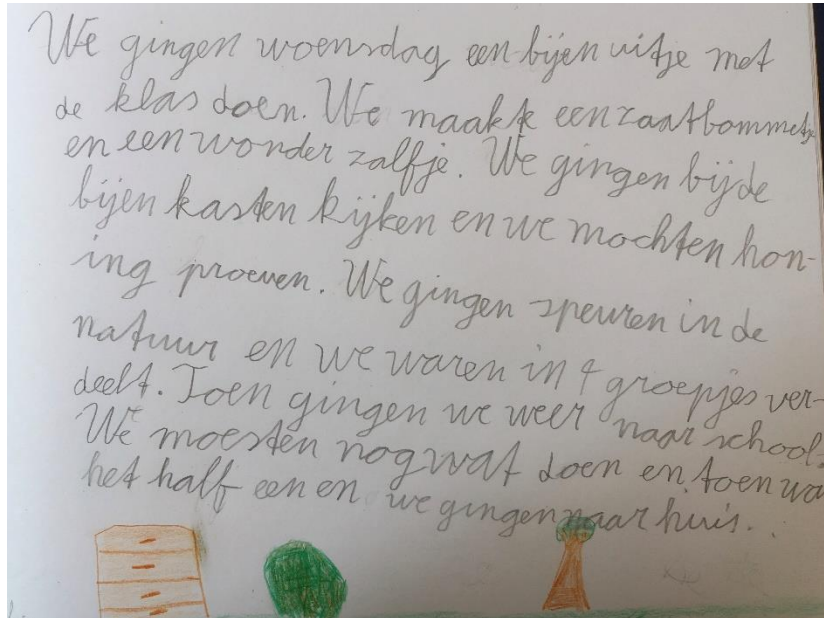 We gingen woensdag een bijen uitje met
de klas doen. We maakte een zaatbommetje
en een wonder zalfje. We gingen bij de
bijen kasten kijken en we mochten hon-
ing proeven. We gingen speuren in de
natuur en we waren in 4 groepjes ver-
deelt. Toen gingen we weer naar school.
We moesten nog wat doen en toen wa
het half een en we gingen naar huis.